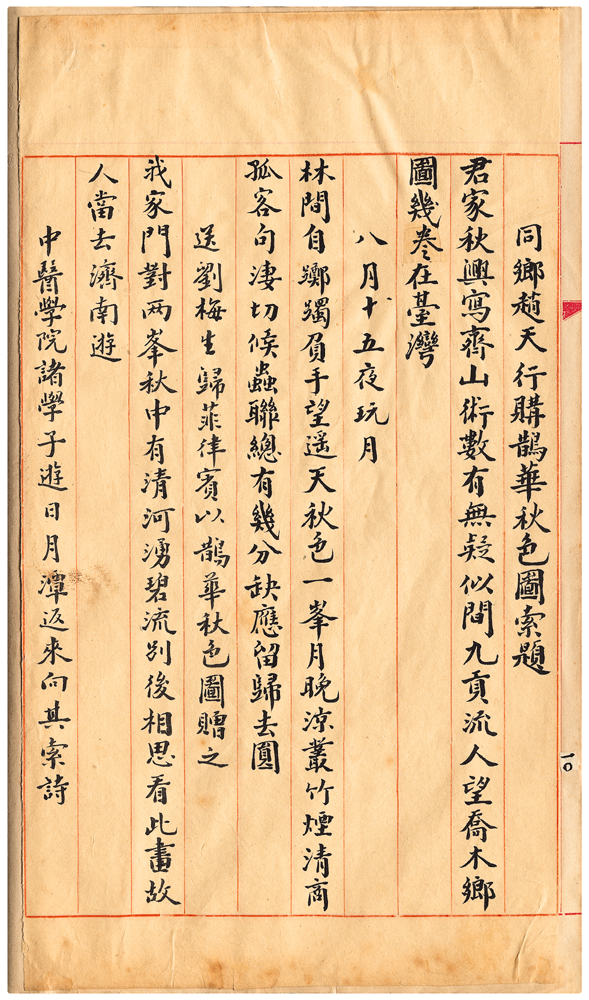 同鄉趙天行購鵲華秋色圖索題
君家秋興寫齊山術數有無疑似間九貢流人望喬木鄉
圖幾卷在臺灣
八月十五夜玩月
林間自躑躅負手望遥天秋色一峯月晚涼叢竹煙清商
孤客句淒切候蟲聯總有幾分缺應留歸去圓
送劉梅生歸菲律賓以鵲華秋色圖贈之
我家門對两峯秋中有清河湧碧流别後相思看此畫故
人當去濟南遊
中醫學院諸學子遊日月潭返來向其索詩
一〇